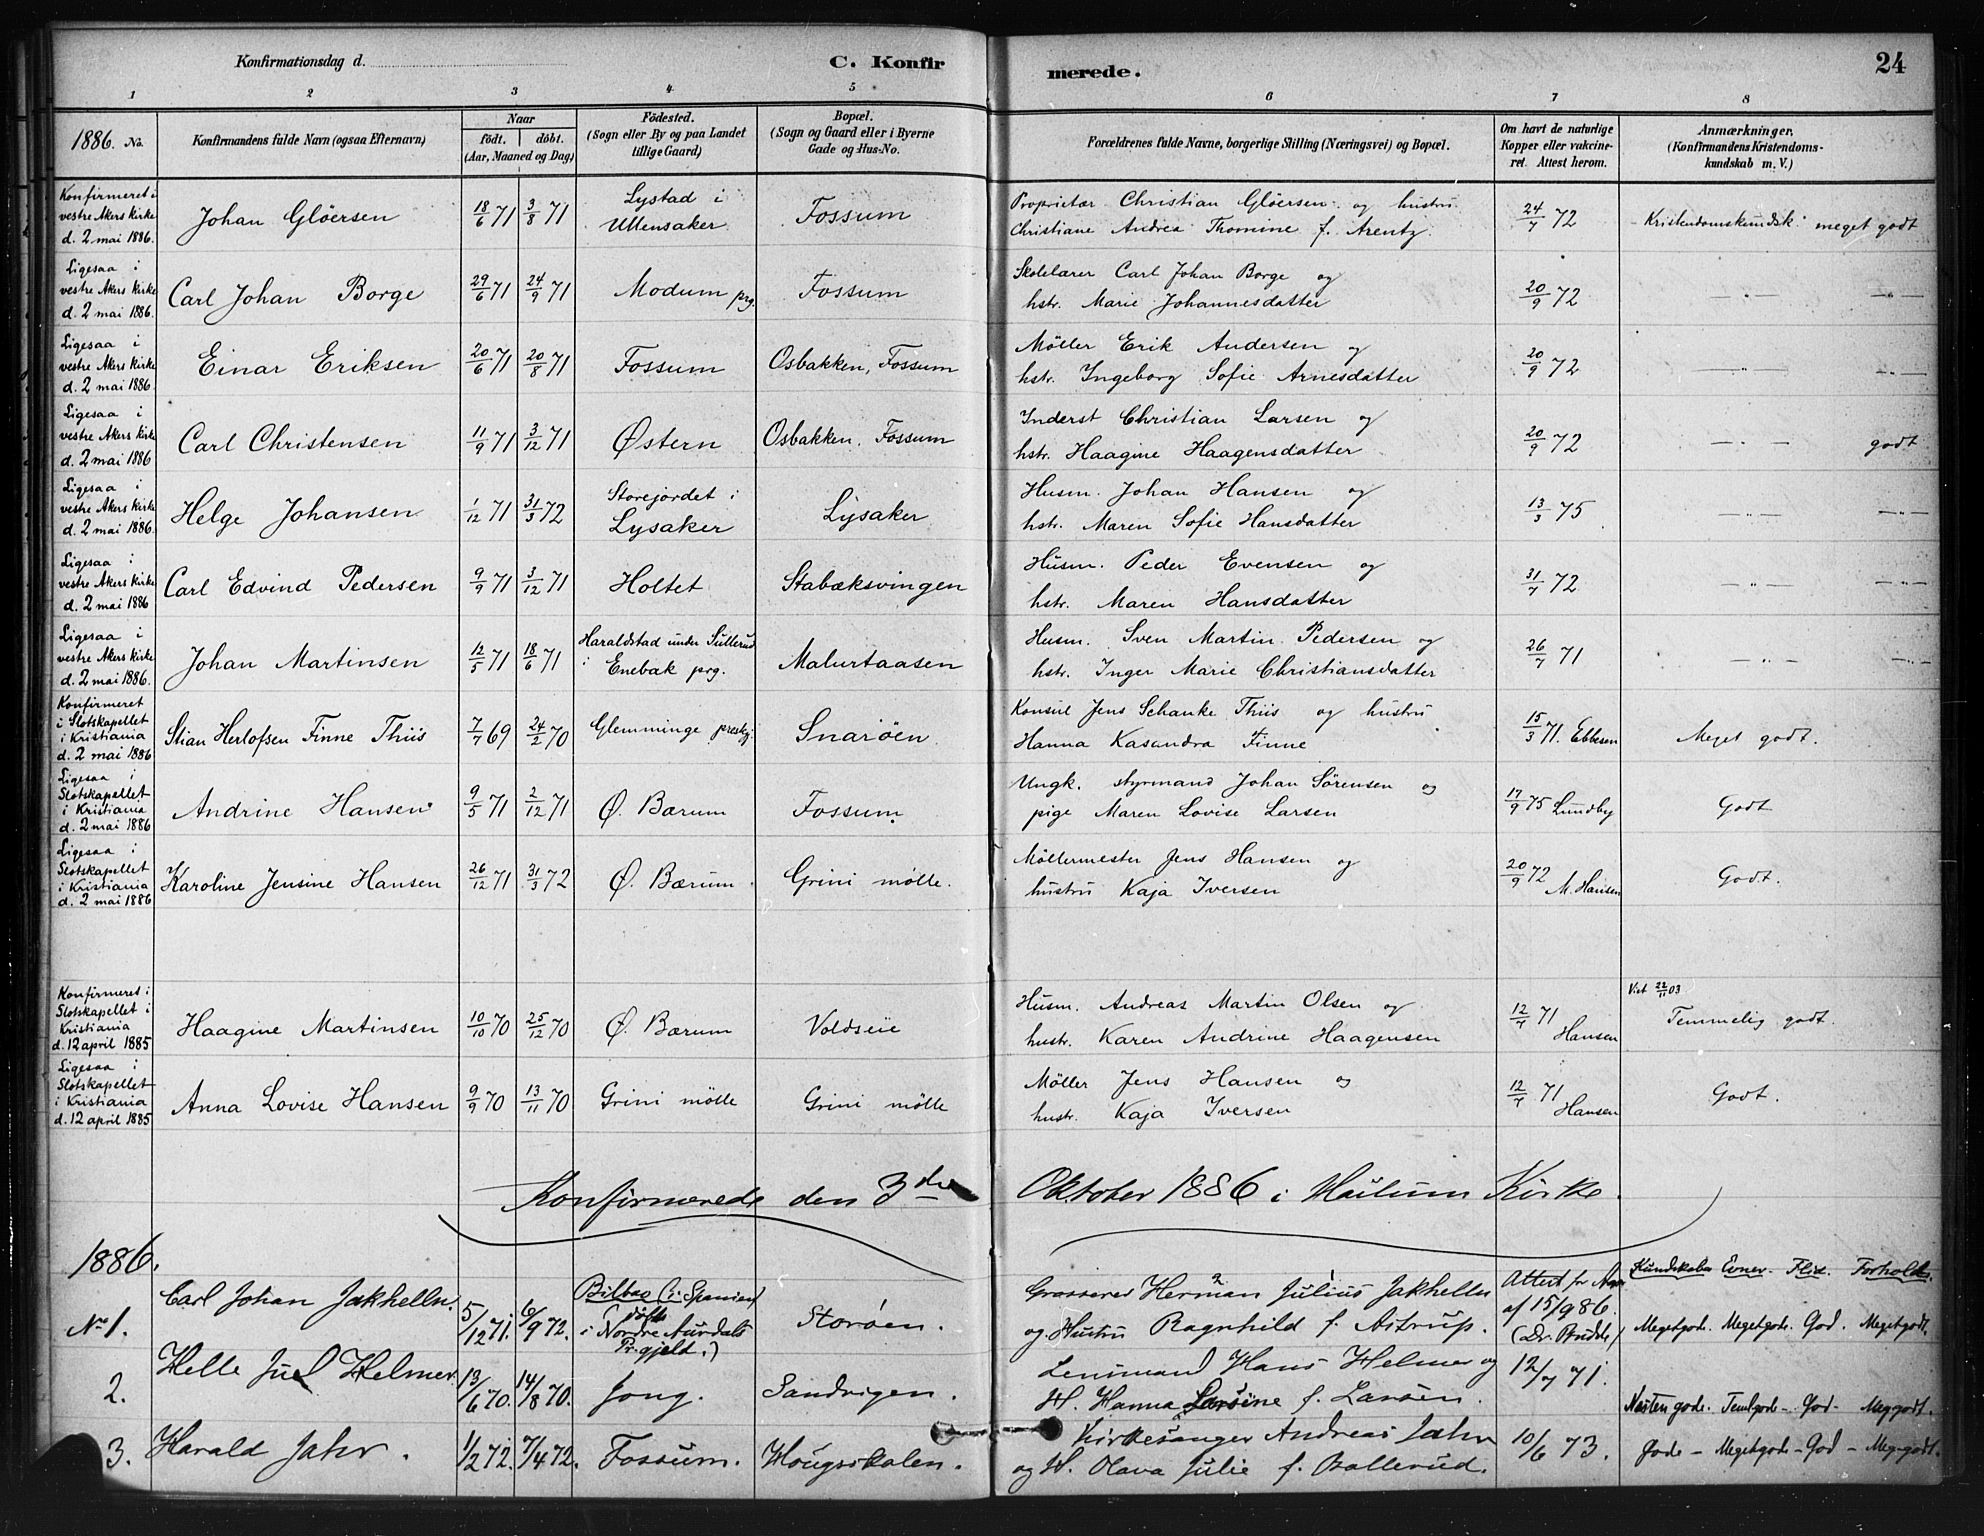 Konfirmationsdag d.
C. Konfirmerede.
24
1 2 3 4 5 6 7 8
1886. No.
Konfirmandens fulde Navn (ogsaa Efternavn)
Naar
födt. döbt.
(Aar, Maaned og Dag)
Födested.
(Sogn eller By og paa Landet
tillige Gaard)
Bopæl.
(Sogn og Gaard eller i Byerne
Gade og Hus-No.
Forældrenes fulde Navne, borgerlige Stilling (Næringsvei) og Bopæl.
Om havt de naturlige
Kopper eller vakcine-
ret. Attest herom.
Anmærkninger,
(Konfirmandens Kristendoms-
kundskab m. V.)
Konfirmeret i
vestre Akers kirke
d. 2 mai 1886.
Johan Glöersen
18/6 71 3/8 71
Lystad i
Ullensaker
Fossum
Proprietær Christian Glöersen og hustru
Christiane Andrea Thomine f. Arentz.
24/7 72
Kristendomskundsk. meget godt
Ligesaa i
vestre Akers kirke
d. 2 mai 1886.
Carl Johan Borge
29/6 71 24/9 71
Modum prg.
Fossum
Skolelærer Carl Johan Borge og
hstr. Marie Johannesdatter
20/9 72
— „ — — „ —
Ligesaa i
vestre Akers kirke
d. 2 mai 1886.
Einar Eriksen
20/6 71 20/8 71
Fossum
Osbakken, Fossum
Möller Erik Andersen og
hstr. Ingeborg Sofie Arnesdatter
20/9 72
— „ — — „ —
Ligesaa i
vestre Akers kirke
d. 2 mai 1886
Carl Christensen
11/9 71 3/12 71
Østern
Osbakken, Fossum
Inderst Christian Larsen og
hstr. Haagine Haagensdatter
20/9 72
— „ — godt
Ligesaa i
vestre Akers kirke
d. 2 mai 1886.
Helge Johansen
1/12 71 31/3 72
Storejordet i
Lysaker
Lysaker
Husm. Johan Hansen og
hstr. Maren Sofie Hansdatter
13/3 75
— „ — — „ —
Ligesaa i
vestre Akers kirke
d. 2 mai 1886
Carl Edvind Pedersen
9/9 71 3/12 71
Holtet
Stabæksvingen
Husm. Peder Evensen og
hstr. Maren Hansdatter
31/7 72
— „ — — „ —
Ligesaa i
vestre Akers kirke
d. 2 mai 1886.
Johan Martinsen
12/5 71 18/6 71
Haraldstad under Sullerud
i Enebak prg.
Malurtaasen
Husm. Sven Martin Pedersen og
hstr. Inger Marie Christiansdatter
26/7 71
— „ — — „ —
Konfirmeret
i Slotskapellet
i Kristiania
d. 2 mai 1886
Stian Herlofsen Finne Thiis
7/7 69 24/2 70
Glemminge prestgj.
Snaröen
Konsul Jens Schanke Thiis og hustru
Hanna Kasandra Finne
15/3 71. Ebbesen
Meget godt.
Ligesaa i
Slotskapellet
i Kristiania
d. 2 mai 1886
Andrine Hansen
9/5 71 2/12 71
Ø. Bærum
Fossum
Ungk. styrmand Johan Sörensen og
pige Maren Lovise Larsen
17/9 75 Lundby
Godt
Ligesaa i
Slotskapellet
i Kristiania
d. 2 mai 1886
Karoline Jensine Hansen
26/12 71 31/3 72
Ø. Bærum
Grini mölle.
Möllermester Jens Hansen og
hustru Kaja Iversen
20/9 72 M. Hansen
Godt.
Konfirmeret i
Slotskapellet i
Kristiania
d. 12 april 1885
Haagine Martinsen
10/10 70 25/12 70
Ø. Bærum
Voldseie
Husm. Andreas Martin Olsen og
hustr. Karen Andrine Haagensen
12/7 71 Hansen
Viet 22/11 03
Temmelig godt.
Ligesaa i
Slotskapellet
i Kristiania
d. 12 april 1885
Anna Lovise Hansen
9/9 70 13/11 70
Grini mölle
Grini mölle
Möller Jens Hansen og
hustr. Kaja Iversen
12/7 71 Hansen
Godt.
Konfirmerede den 3die Oktober 1886 i Haslum Kirke.
1886.
Kundskaber Evner. Flid. Forhold.
No 1.
Carl Johan Jakhelln.
5/12 71. 6/9 72.
Bilbao (i Spanien)
döbt
i Nordre Aurdals
Pr.gjeld.)
Storöen.
Grosserer Herman Julius Jakhelln
og Hustru Ragnhild f. Astrup.
Attest fr
af 15/9 86.
Megetgode. Megetgode. God. Megetgodt.
2.
Helle Juel Helmer
13/6 70. 14/8 70.
Jong.
Sandvigen.
Lensmand Hans Helmer og
H. Hanna Larsine f. Larsen.
12/7 71.
Næsten gode. Temlgode - God - Meggodt.
3.
Harald Jahr.
1/2 72. 7/4 72.
Fossum.
Hougsskolen.
Kirkesanger Andreas Jahr
og H. Olava Julie f. Ballerud.
10/6 73.
Gode - Megetgode - God - Meggodt.